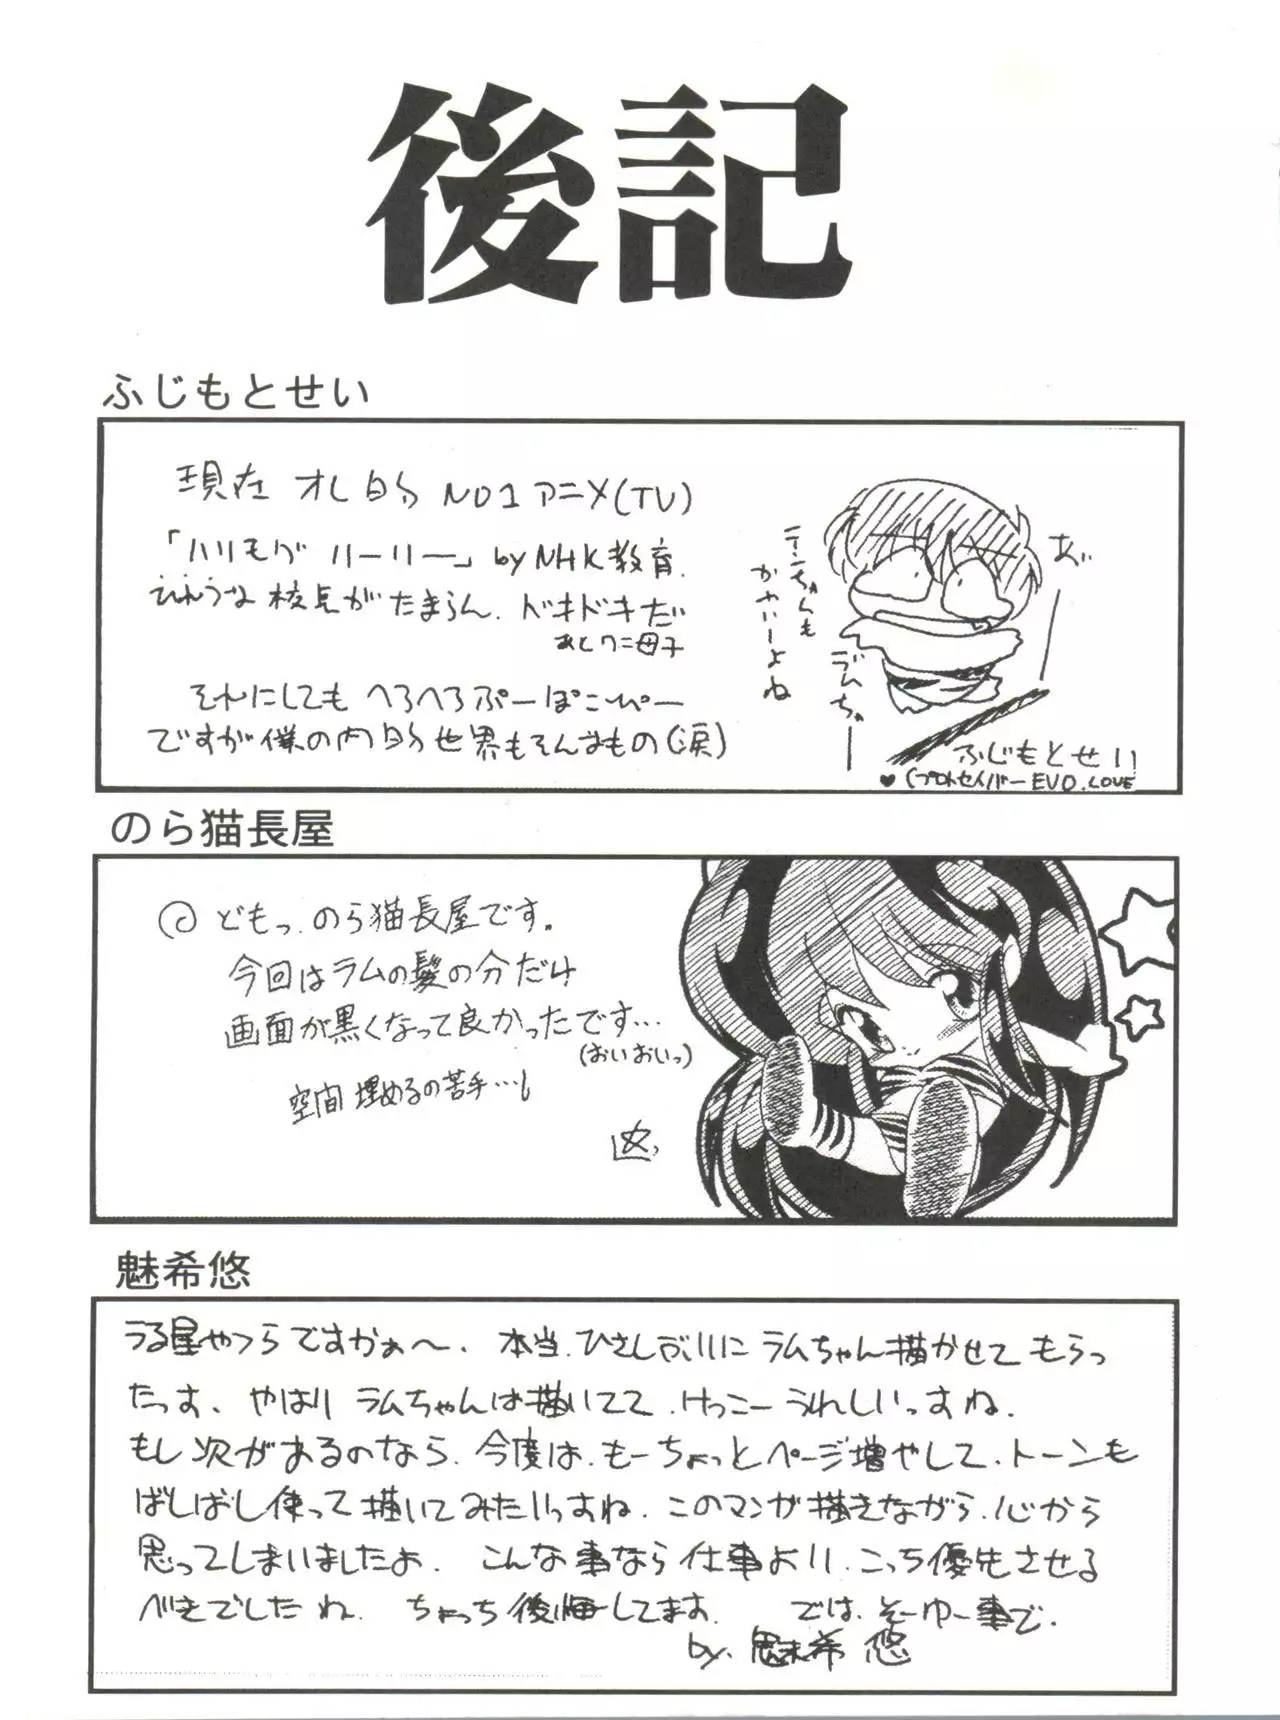 後記
ふじもとせい
現在 オレ的 NO1アニメ(TV)
「ハリモグ ハーリー」by NHK教育.
びみょうな 校長がたまらん. ドキドキだ
あと ワニ母子
それにしても へろへろぷーぽこぴー
ですが 僕の内的世界もそんなもの(涙)
テンちゃんも
かわいーよね
ラムちゃ
あ゛
ふじもとせい
♥(プロトセイバーEVO.LOVE
のら猫長屋
どもっ.のら猫長屋です。
今回はラムの髪の分だけ
画面が黒くなって良かったです…
(おいおいっ)
空間 埋めるの苦手…
魅希悠
うる星やつらですかぁ〜. 本当.ひさしぶりに ラムちゃん描かせて もらっ
たっす. やはり ラムちゃんは描いてて.けっこーうれしいっすね.
もし次があるのなら.今度は.もーちょっとページ増やして.トーンも
ばしばし使って描いてみたいっすね.このマンガ描きながら.心から
思ってしまいましたよ. こんな事なら仕事より.こっち優先させる
べきでしたね. ちょっち後悔してます. では.そーゆー事で.
by. 魅希 悠